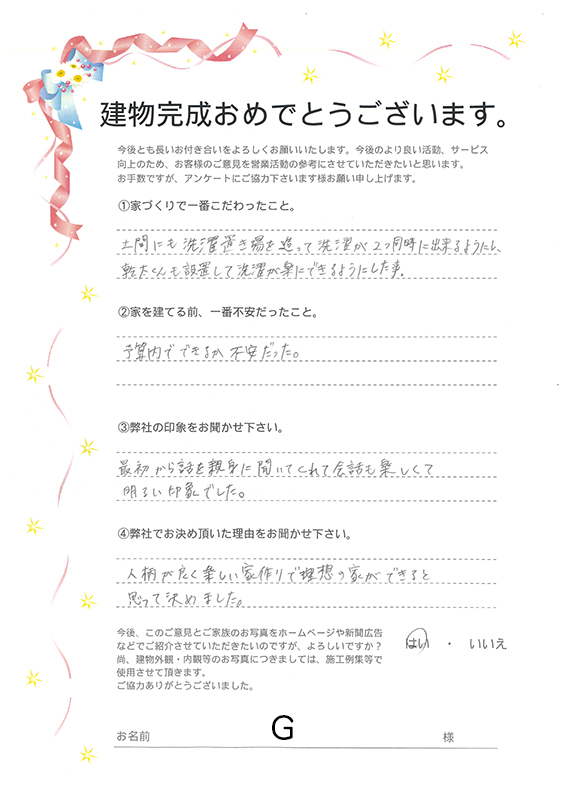 建物完成おめでとうございます。
今後とも長いお付き合いをよろしくお願いいたします。今後のより良い活動、サービス
向上のため、お客様のご意見を営業活動の参考にさせていただきたいと思います。
お手数ですが、アンケートにご協力下さいます様お願い申し上げます。
①家づくりで一番こだわったこと。
土間にも洗濯置き場を造って洗濯が2つ同時に出来るようにし、
乾太くんも設置して洗濯が楽にできるようにした事。
②家を建てる前、一番不安だったこと。
予算内でできるか不安だった。
③弊社の印象をお聞かせ下さい。
最初から話を親身に聞いてくれて会話も楽しくて
明るい印象でした。
④弊社でお決め頂いた理由をお聞かせ下さい。
人柄が良く楽しい家作りで理想の家ができると
思って決めました。
今後、このご意見とご家族のお写真をホームページや新聞広告
などでご紹介させていただきたいのですが、よろしいですか？
はい ・ いいえ
尚、建物外観・内観等のお写真につきましては、施工例集等で
使用させて頂きます。
ご協力ありがとうございました。
お名前 G 様